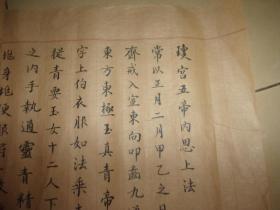 瓊宮五帝內思上法
常以正月二月甲乙之日
齋戒入室東向叩齒九通
東方東極玉真青帝
字上伯衣服如法乘
從青要玉女十二人下
之內手執通靈青精